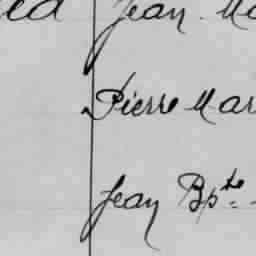 Jean
Pierre Mar
Jean Bpte